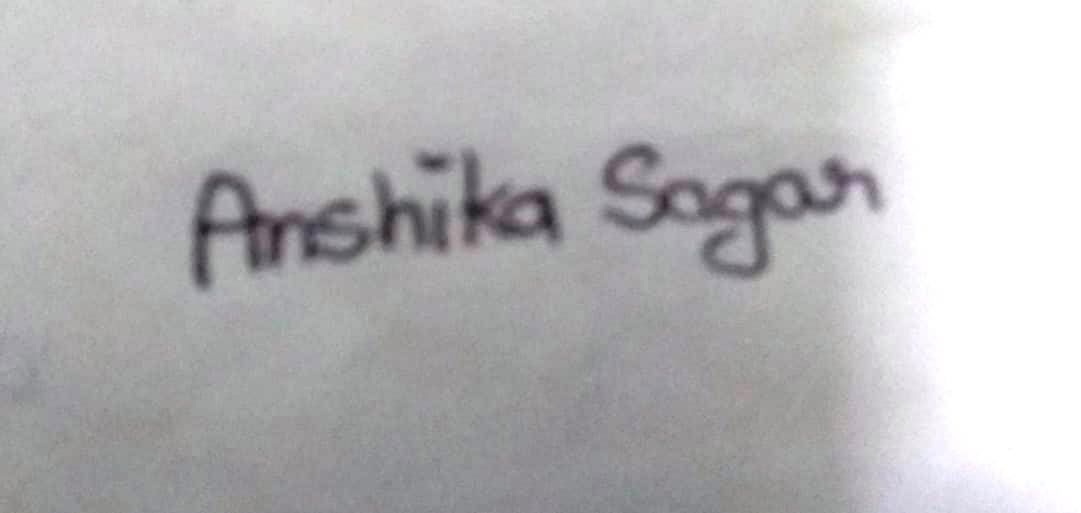 Anshika Sagar